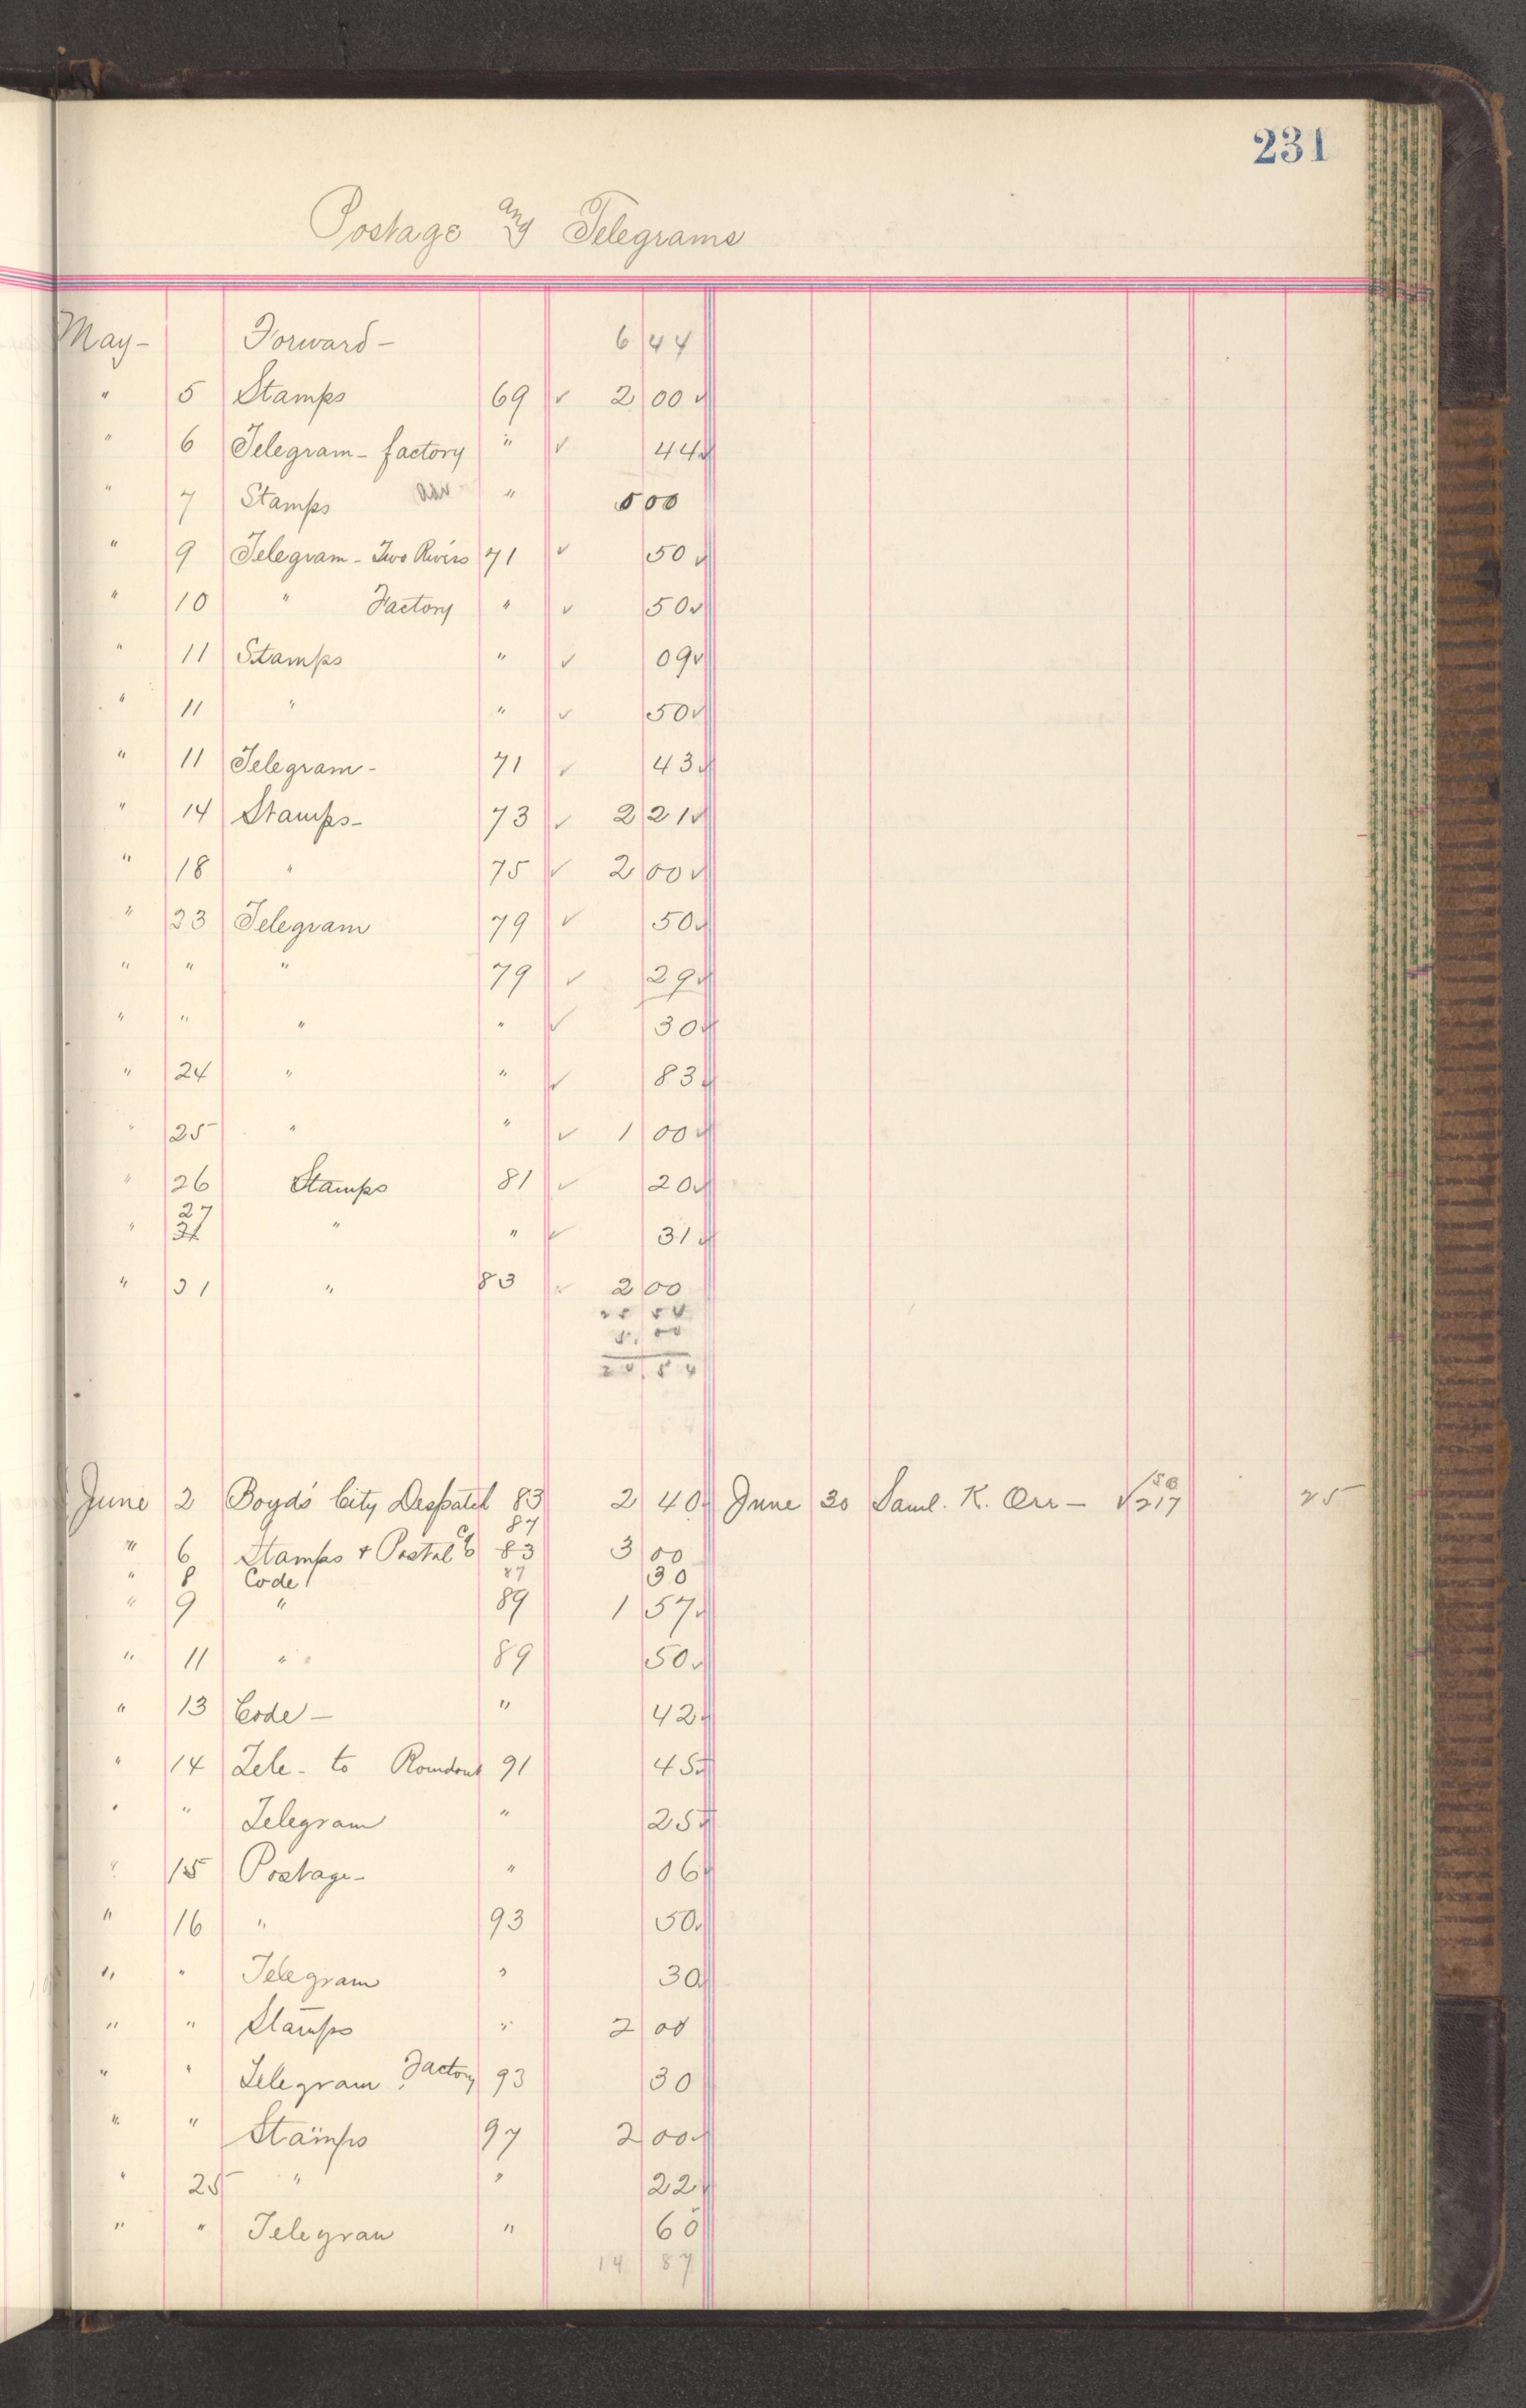 231
Postage and Telegrams
May - Forward - 6 44
" 5 Stamps 69 ✓ 2 00 ✓
" 6 Telegram - factory " ✓ 44 ✓
" 7 Stamps " 5 00
" 9 Telegram - Two Rivers 71 ✓ 50 ✓
" 10 " Factory " ✓ 50 ✓
" 11 Stamps " ✓ 09 ✓
" 11 " " ✓ 50 ✓
" 11 Telegram - 71 ✓ 43 ✓
" 14 Stamps - 73 ✓ 2 21 ✓
" 18 " 75 ✓ 2 00 ✓
" 23 Telegram 79 ✓ 50 ✓
" " " 79 ✓ 29 ✓
" " " " ✓ 30 ✓
" 24 " " ✓ 83 ✓
" 25 " " ✓ 1 00 ✓
" 26 Stamps 81 ✓ 20 ✓
27
" 31 " " ✓ 31 ✓
" 31 " 83 ✓ 2 00
5 00
June 2 Boyds' City Despatch 83 2 40 ✓ June 30 Saml. K. Orr - √217 25
87
" 6 Stamps + Postal Cds 83 3 00
" 8 Code 87 30
" 9 " 89 1 57 ✓
" 11 " 89 50 ✓
" 13 Code - " 42 ✓
" 14 Tele - to Rondout 91 45 ✓
" " Telegram " 25 ✓
" 15 Postage - " 06 ✓
" 16 " 93 50 ✓
" " Telegram " 30 ✓
" " Stamps " 2 00
" " Telegram Factory 93 30
" " Stamps 97 2 00 ✓
" 25 " " 22 ✓
" " Telegram " 60
14 87